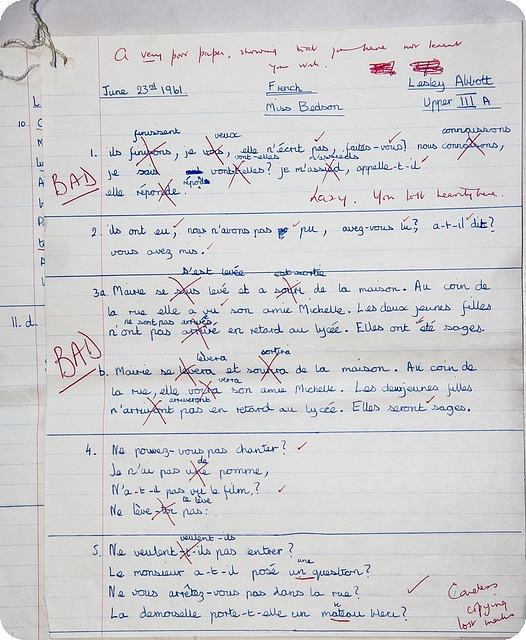 A very poor paper, showing that you have not learnt
your work.
June 23rd 1961. French Lesley Abbott
Miss Bedson Upper III A
finissent veux connaissons
1. ils finissons, je vous, elle n'écrit pas, faites-vous? nous connaisons,
vont-elles m'assieds
je sais vont-elles? je m'assied, appelle-t-il
répond
elle réponde.
BAD
Lazy. You lost heavily here.
2. ils ont eu, nous n'avons pas pu, avez-vous lu? a-t-il dit?
vous avez mis.
s'est levée est sortie
3a. Marie se sous levé et a souri de la maison. Au coin de
la rue elle a vu son amie Michelle. Les deux jeunes filles
ne sont pas arrivées
n'ont pas arrivé en retard au lycée. Elles ont été sages.
BAD
lèvera sortira
b. Marie se levera et sourira de la maison. Au coin de
verra
la rue, elle voira son amie Michelle. Les deux jeunes filles
arriveront
n'arriveront pas en retard au lycée. Elles seront sages.
4. Ne pouvez-vous pas chanter?
de
Je n'ai pas une pomme,
N'a-t-il pas vu le film?
te lève
Ne lève-toi pas.
veulent-ils
5. Ne veulent-t-ils pas entrer?
une
Le monsieur a-t-il posé un question?
Ne vous arrêtez-vous pas dans la rue?
La demoiselle porte-t-elle un mateau bleu?
Careless
copying
lost marks
10.
11. d.